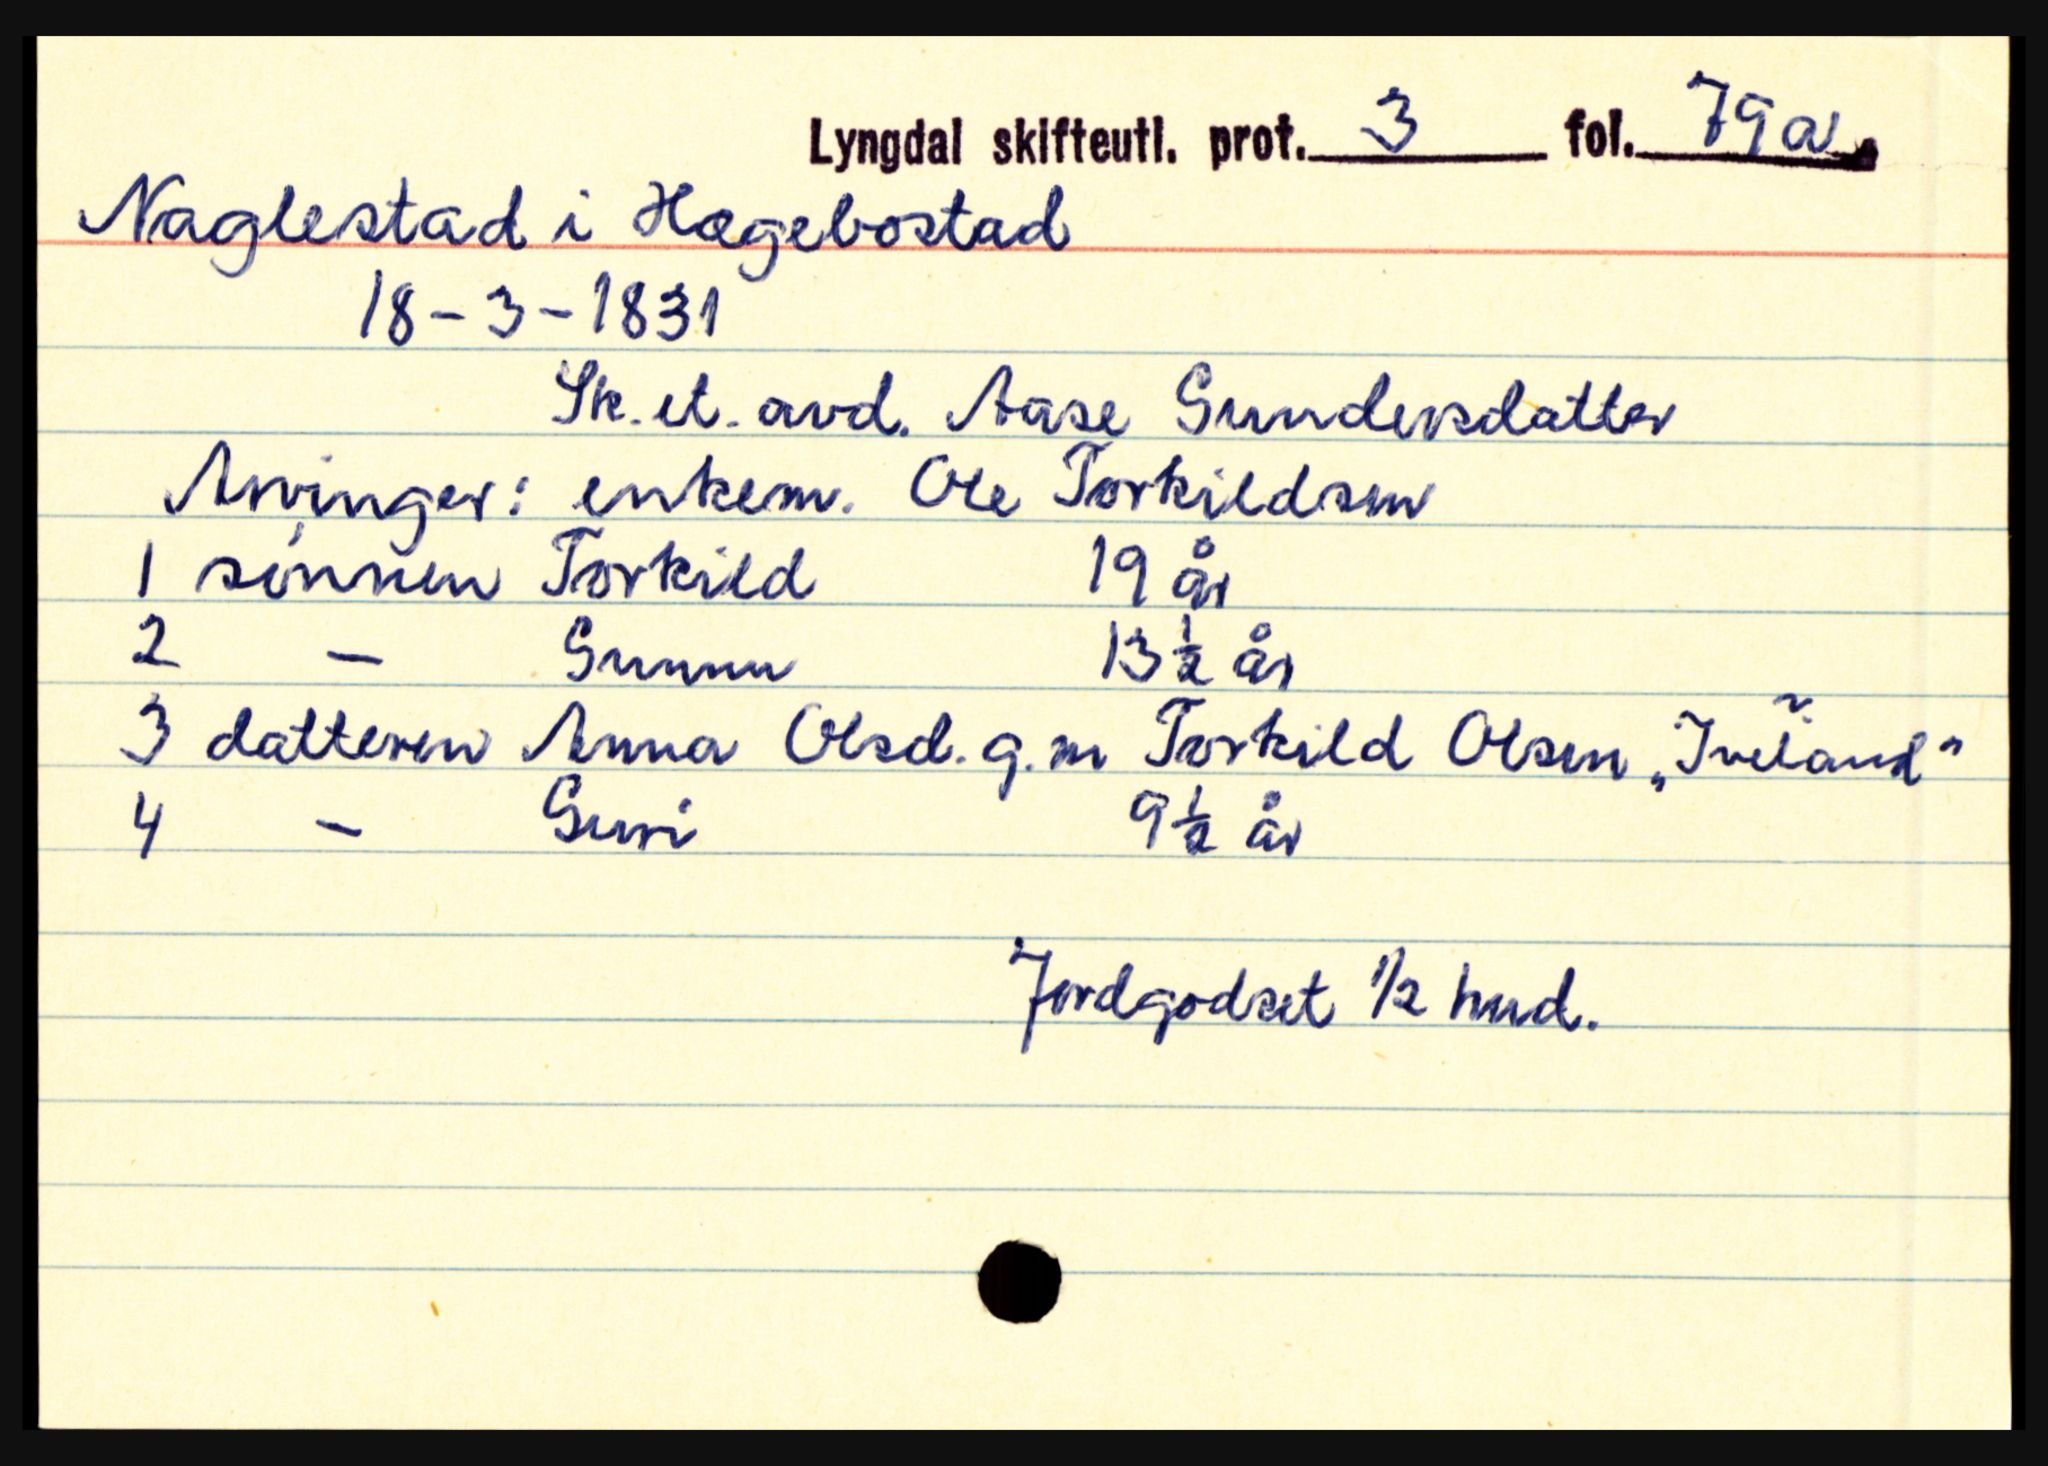 Lyngdal skifteutl. prot. 3 fol. 79a.
Naglestad i Hægebostad
18-3-1831
Sk. et. avd. Aase Gundersdatter
Arvinger: enkem. Ole Torkildsen
1 sønnen Torkild 19 år
2 — Gunnu 13 1/2 år
3 datteren Anna Olsd. g.m Torkild Olsen „Iveland"
4 — Guri 9 1/2 år
Jordgodset 1/2 hud.